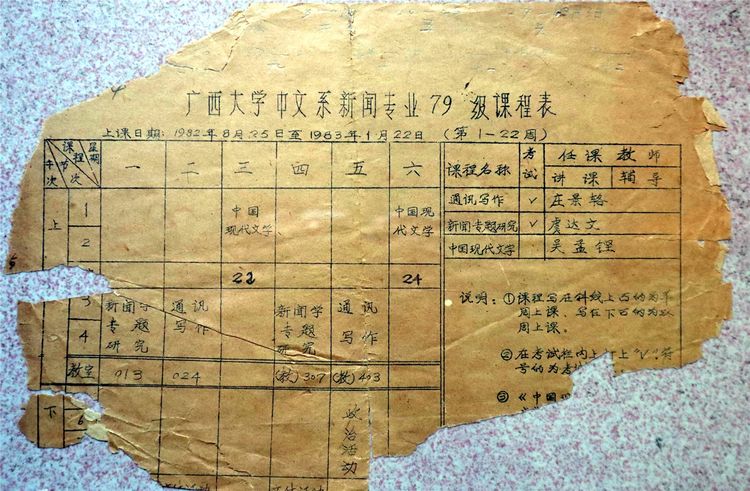 广西大学中文系新闻专业79级课程表
上课日期：1982年8月25日至1983年1月22日（第1-22周）
星期
课程
节次
午次
一 二 三 四 五 六
上
1
2
中国
现代文学
中国现
代文学
22 24
3
4
新闻学
专题
研究
通讯
写作
新闻学
专题
研究
通讯
写作
教室 013 024 (教)307 (教)403
下
6
政
治
活
动
课程名称 考试 任课教师
讲课 辅导
通讯写作 √ 庄景辂
新闻专题研究 √ 虞达文
中国现代文学 吴孟铿
说明：①课程写在斜线上凸的为单
周上课、写在下凸的为双
周上课。
②在考试栏内上打上“√”符
号的为考
③《中国现